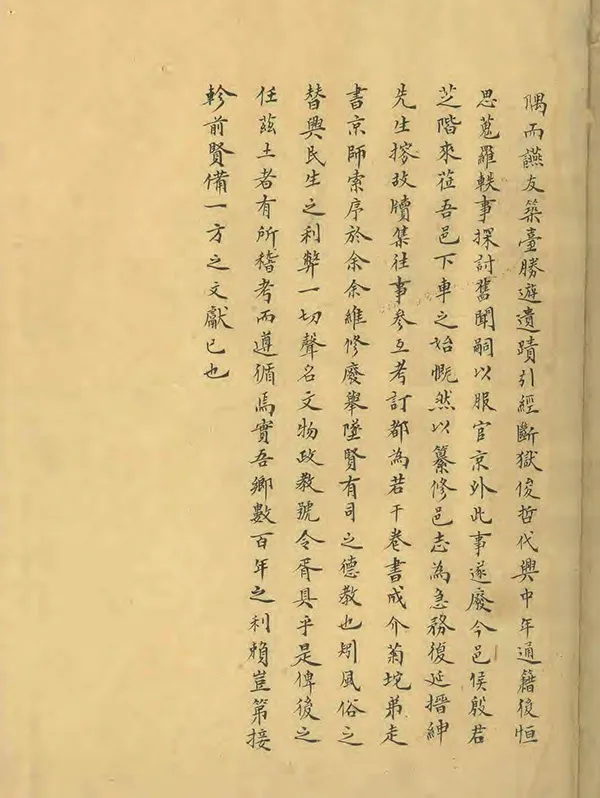 隅而讌友築臺勝遊遺蹟引經斷獄俊哲代興中年通籍後恒
思蒐羅軼事探討舊聞嗣以服官京外此事遂廢今邑侯殷君
芝階來莅吾邑下車之始慨然以纂修邑志為急務復延搢紳
先生搜故牘集往事參互考訂都為若干卷書成介菊坨弟走
書京師索序於余余維修廢舉墜賢有司之德教也矧風俗之
替興民生之利弊一切聲名文物政教號令胥具乎是俾後之
任茲土者有所稽考而遵循焉實吾鄉數百年之利賴豈第接
軫前賢備一方之文獻已也